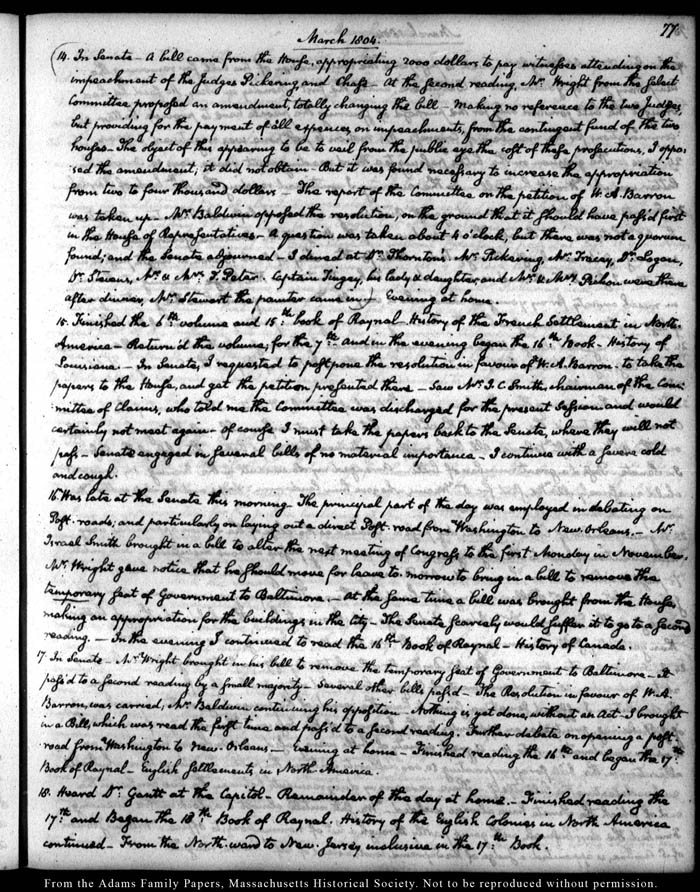 77
March 1804.
14. In Senate – A bill came from the House, appropriating 2000 dollars to pay witnesses attending on the
impeachment of the Judges Pickering and Chase – At the second reading, Mr. Wright from the select
Committee proposed an amendment, totally changing the bill – Making no reference to the two Judges,
but providing for the payment of all expences, on impeachments, from the contingent fund of the two
houses – The object of this appearing to be to veil from the public eye the cost of these prosecutions, I oppo-
sed the amendment; it did not obtain – But it was found necessary to increase the appropriation
from two to four thousand dollars – The report of the Committee on the petition of W. A. Barron
was taken up – Mr. Baldwin opposed the resolution, on the ground that it should have pass'd first
in the House of Representatives – A question was taken about 4 o'clock, but there was not a quorum
found; and the Senate adjourned – I dined at Dr. Thornton's. Mr. Pickering, Mr. Tracey, Dr. Logan,
Dr. Stevens, Mr. & Mrs. T. Peter. Captain Tingey, his lady & daughter, and Mr. & Mrs. Pichon were there
after dinner, Mr. Stewart the painter came in – Evening at home.
15. Finished the 6th volume and 15th book of Raynal – History of the French Settlement in North
America – Return'd the volume, for the 7th. And in the evening began the 16th Book – History of
Louisiana. – In Senate, I requested to postpone the resolution in favour of W. A. Barron. to take the
papers to the House, and get the petition presented there – Saw Mr. J. C. Smith, chairman of the Com-
mittee of Claims, who told me the Committee was discharged for the present Session and would
certainly not meet again – of course I must take the papers back to the Senate, where they will not
pass – Senate engaged in several bills of no material importance – I continue with a severe cold
and cough.
16. Was late at the Senate this morning – The principal part of the day was employed in debating on
Post-roads; and particularly on laying out a direct Post-road from Washington to New-Orleans. – Mr.
Israel Smith brought in a bill to alter the next meeting of Congress to the first Monday in November.
Mr. Wright gave notice that he should move for leave to-morrow to bring in a bill to remove the
temporary seat of Government to Baltimore – At the same time a bill was brought from the House,
making an appropriation for the buildings in the City – The Senate scarcely would suffer it to go to a second
reading. – In the evening I continued to read the 16th Book of Raynal – History of Canada.
17. In Senate – Mr. Wright brought in his bill to remove the temporary seat of Government to Baltimore – It
pass'd to a second reading by a small majority – Several other bills pass'd – The Resolution in favour of W. A.
Barron, was carried, Mr. Baldwin continuing his opposition – Nothing is yet done, without an Act – I brought
in a Bill, which was read the first time and pass'd to a second reading. Further debate on opening a post-
road from Washington to New-Orleans – Evening at home – Finished reading the 16th and began the 17th
Book of Raynal – English Settlements in North-America.
18. Heard Dr. Gantt at the Capitol – Remainder of the day at home. – Finished reading the
17th and Began the 18th Book of Raynal. History of the English Colonies in North America
continued – From the North-ward to New-Jersey inclusive in the 17th Book.
From the Adams Family Papers, Massachusetts Historical Society. Not to be reproduced without permission.